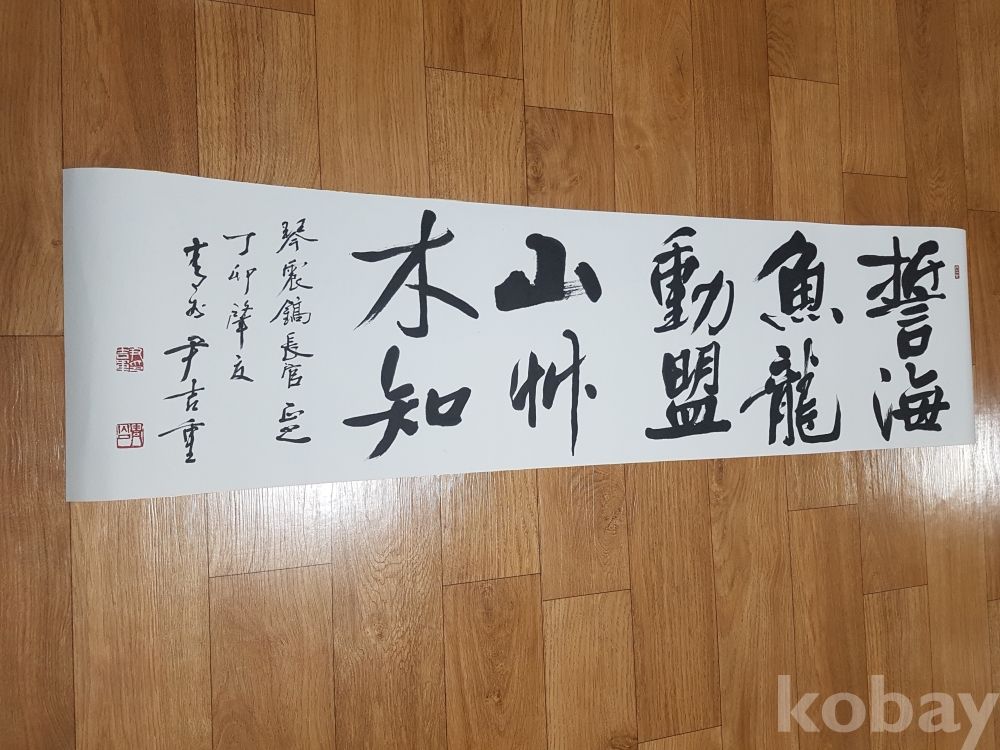 誓海
魚龍
動盟
山艸
木知
琴震鎬長官 正之
丁卯肇夏
青谷 尹吉重
kobay